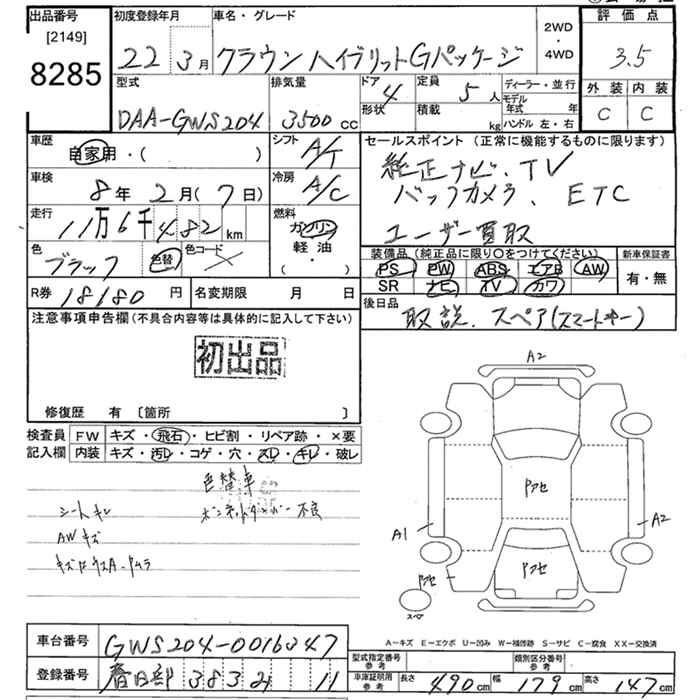 出品番号 初度登録年月 車名・グレード 2WD・4WD 評価点
[2149]
8285
22年3月 クラウン ハイブリットGパッケージ 3.5
型式 排気量 ドア 定員 ディーラー・並行 外装 内装
DAA-GWS204 3500cc 4 5人 モデル年式 年 C C
形状 積載 kg ハンドル 左・右
車歴 シフト セールスポイント(正常に機能するものに限ります)
自家用・( ) A/T 純正ナビ、TV
車検 冷房 バックカメラ、ETC
8年2月(7日) A/C
走行 燃料 ユーザー買取
11万6千482km ガソリン
軽油
( ・ )
色 色替 色コード 装備品(純正品に限り○をつけてください) 新車保証書
ブラック PS PW ABS エアB AW 有・無
SR ナビ TV カワ
R券 18180円 名変期限 月 日 後日品
取説、スペア(スマートキー)
注意事項申告欄(不具合内容等は具体的に記入して下さい)
初出品
修復歴 有 [箇所 ]
検査員 FW キズ・飛石・ヒビ割・リペア跡・×要
記入欄 内装 キズ・汚レ・コゲ・穴・スレ・キレ・破レ
色替車
シートキレ ボンネットダンパー不良
AWキズ
A2
Pアセ
A1 A2
Pアセ
Pアセ
スペア
A-キズ E-エクボ U-凹み W-補修跡 S-サビ C-腐食 XX-交換済
車台番号 GWS204-0016047
型式指定番号 参考 類別区分番号 参考
登録番号 春日部 383 11
車庫証明用 参考 長さ 490cm 幅 179cm 高さ 147cm